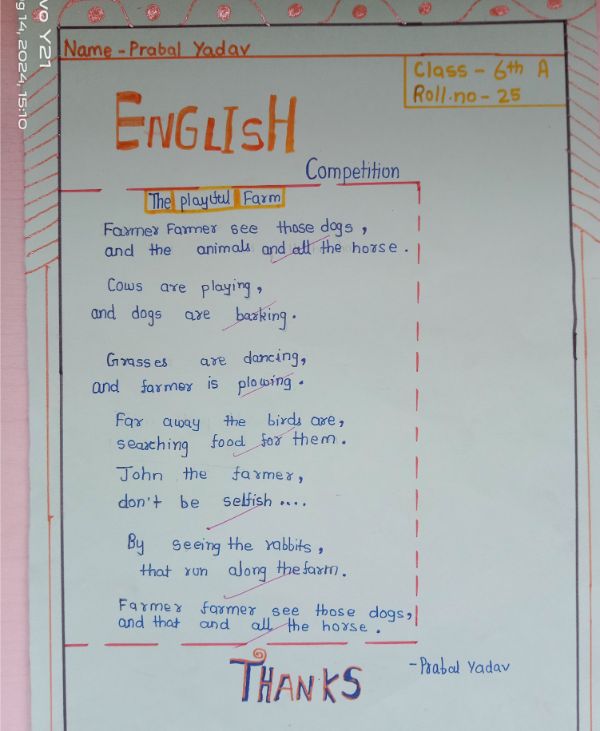 vo Y21
g 14, 2024, 15:10
Name - Prabal Yadav
Class - 6th A
Roll.no - 25
ENGLISH
Competition
The playful Farm
Farmer Farmer see those dogs,
and the animals and all the horse.
Cows are playing,
and dogs are barking.
Grasses are dancing,
and farmer is plowing.
Far away the birds are,
searching food for them.
John the farmer,
don't be selfish ....
By seeing the rabbits,
that run along the farm.
Farmer farmer see those dogs,
and that and all the horse.
THANKS
- Prabal Yadav